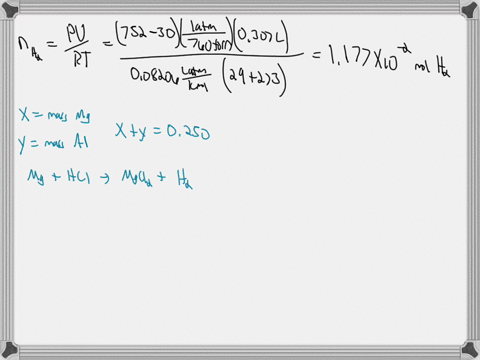 n_H₂ = PV/RT = (752-30)(1atm/760torr)(0.307L) / 0.08206 Latm/Kmol (29+273) = 1.177X10⁻² mol H₂
X = mass Mg
Y = mass Al
X+y = 0.250
Mg + HCl → MgCl₂ + H₂